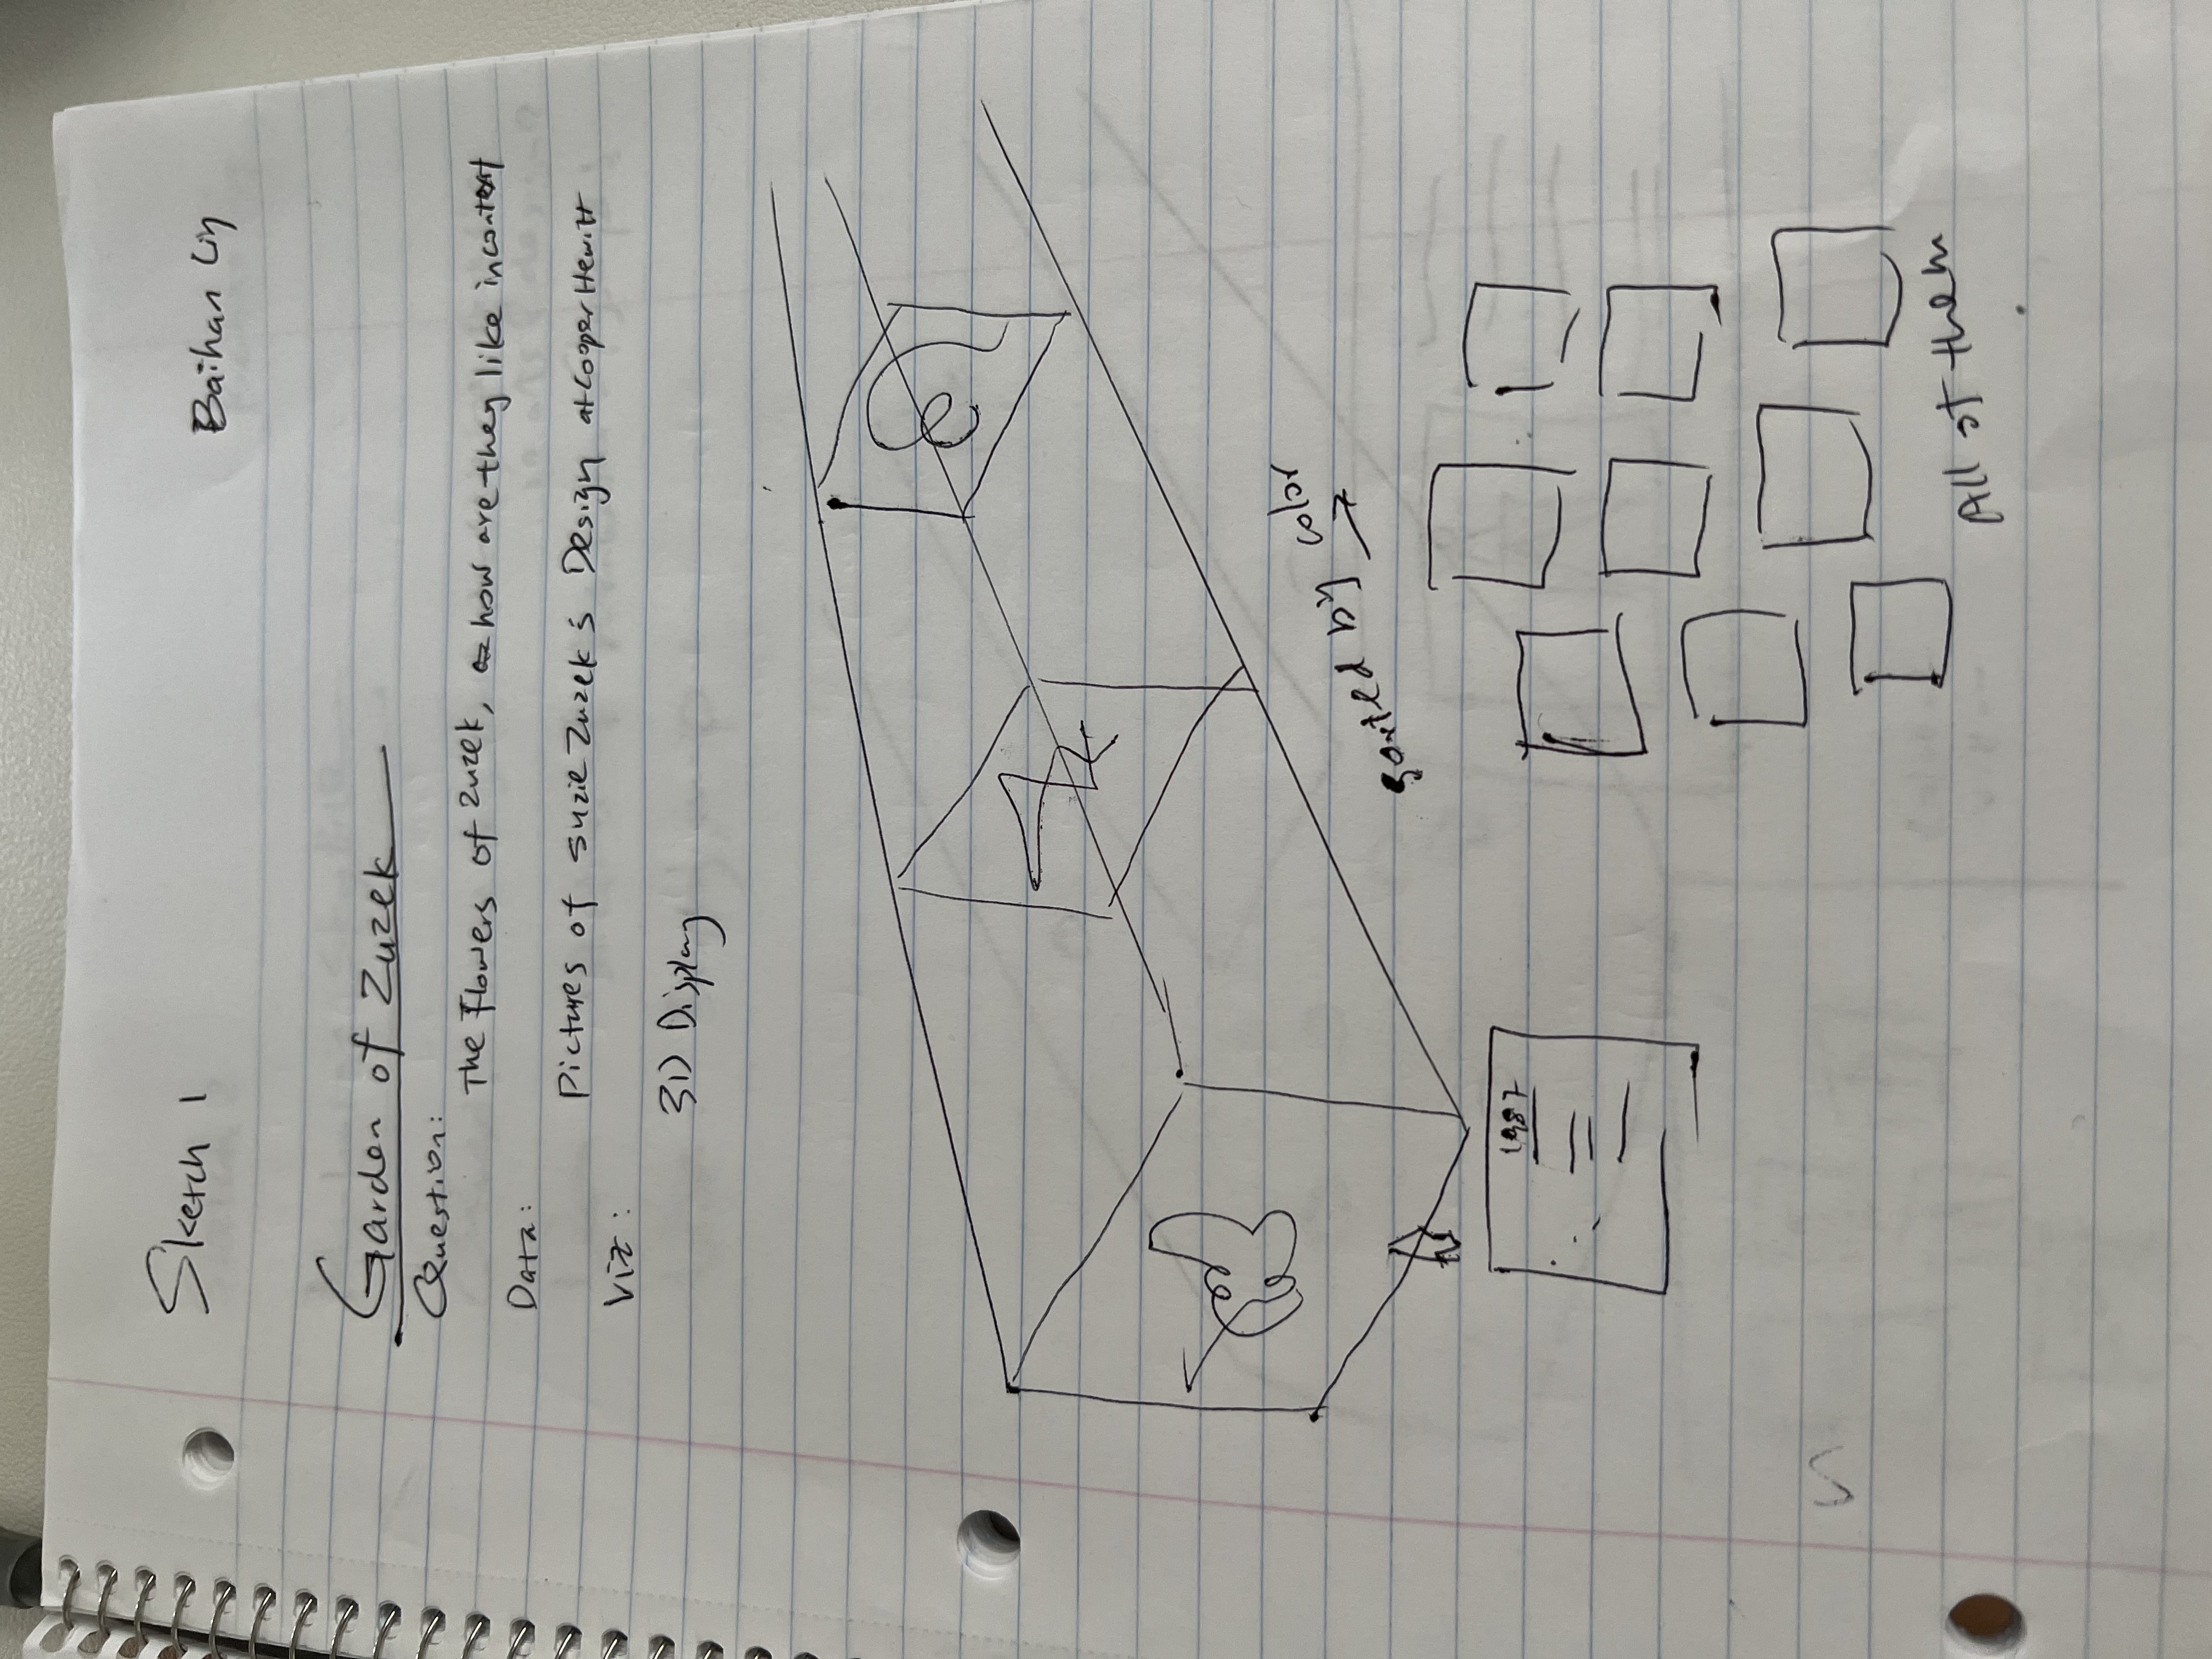 Sketch 1
Baihan Lin
Garden of Zuzek
Question:
The Flowers of Zuzek, how are they like in context
Data:
Pictures of Suzie Zuzek's Design at Cooper Hewitt
Viz:
3D Display
Sorted by color
1987
All of them